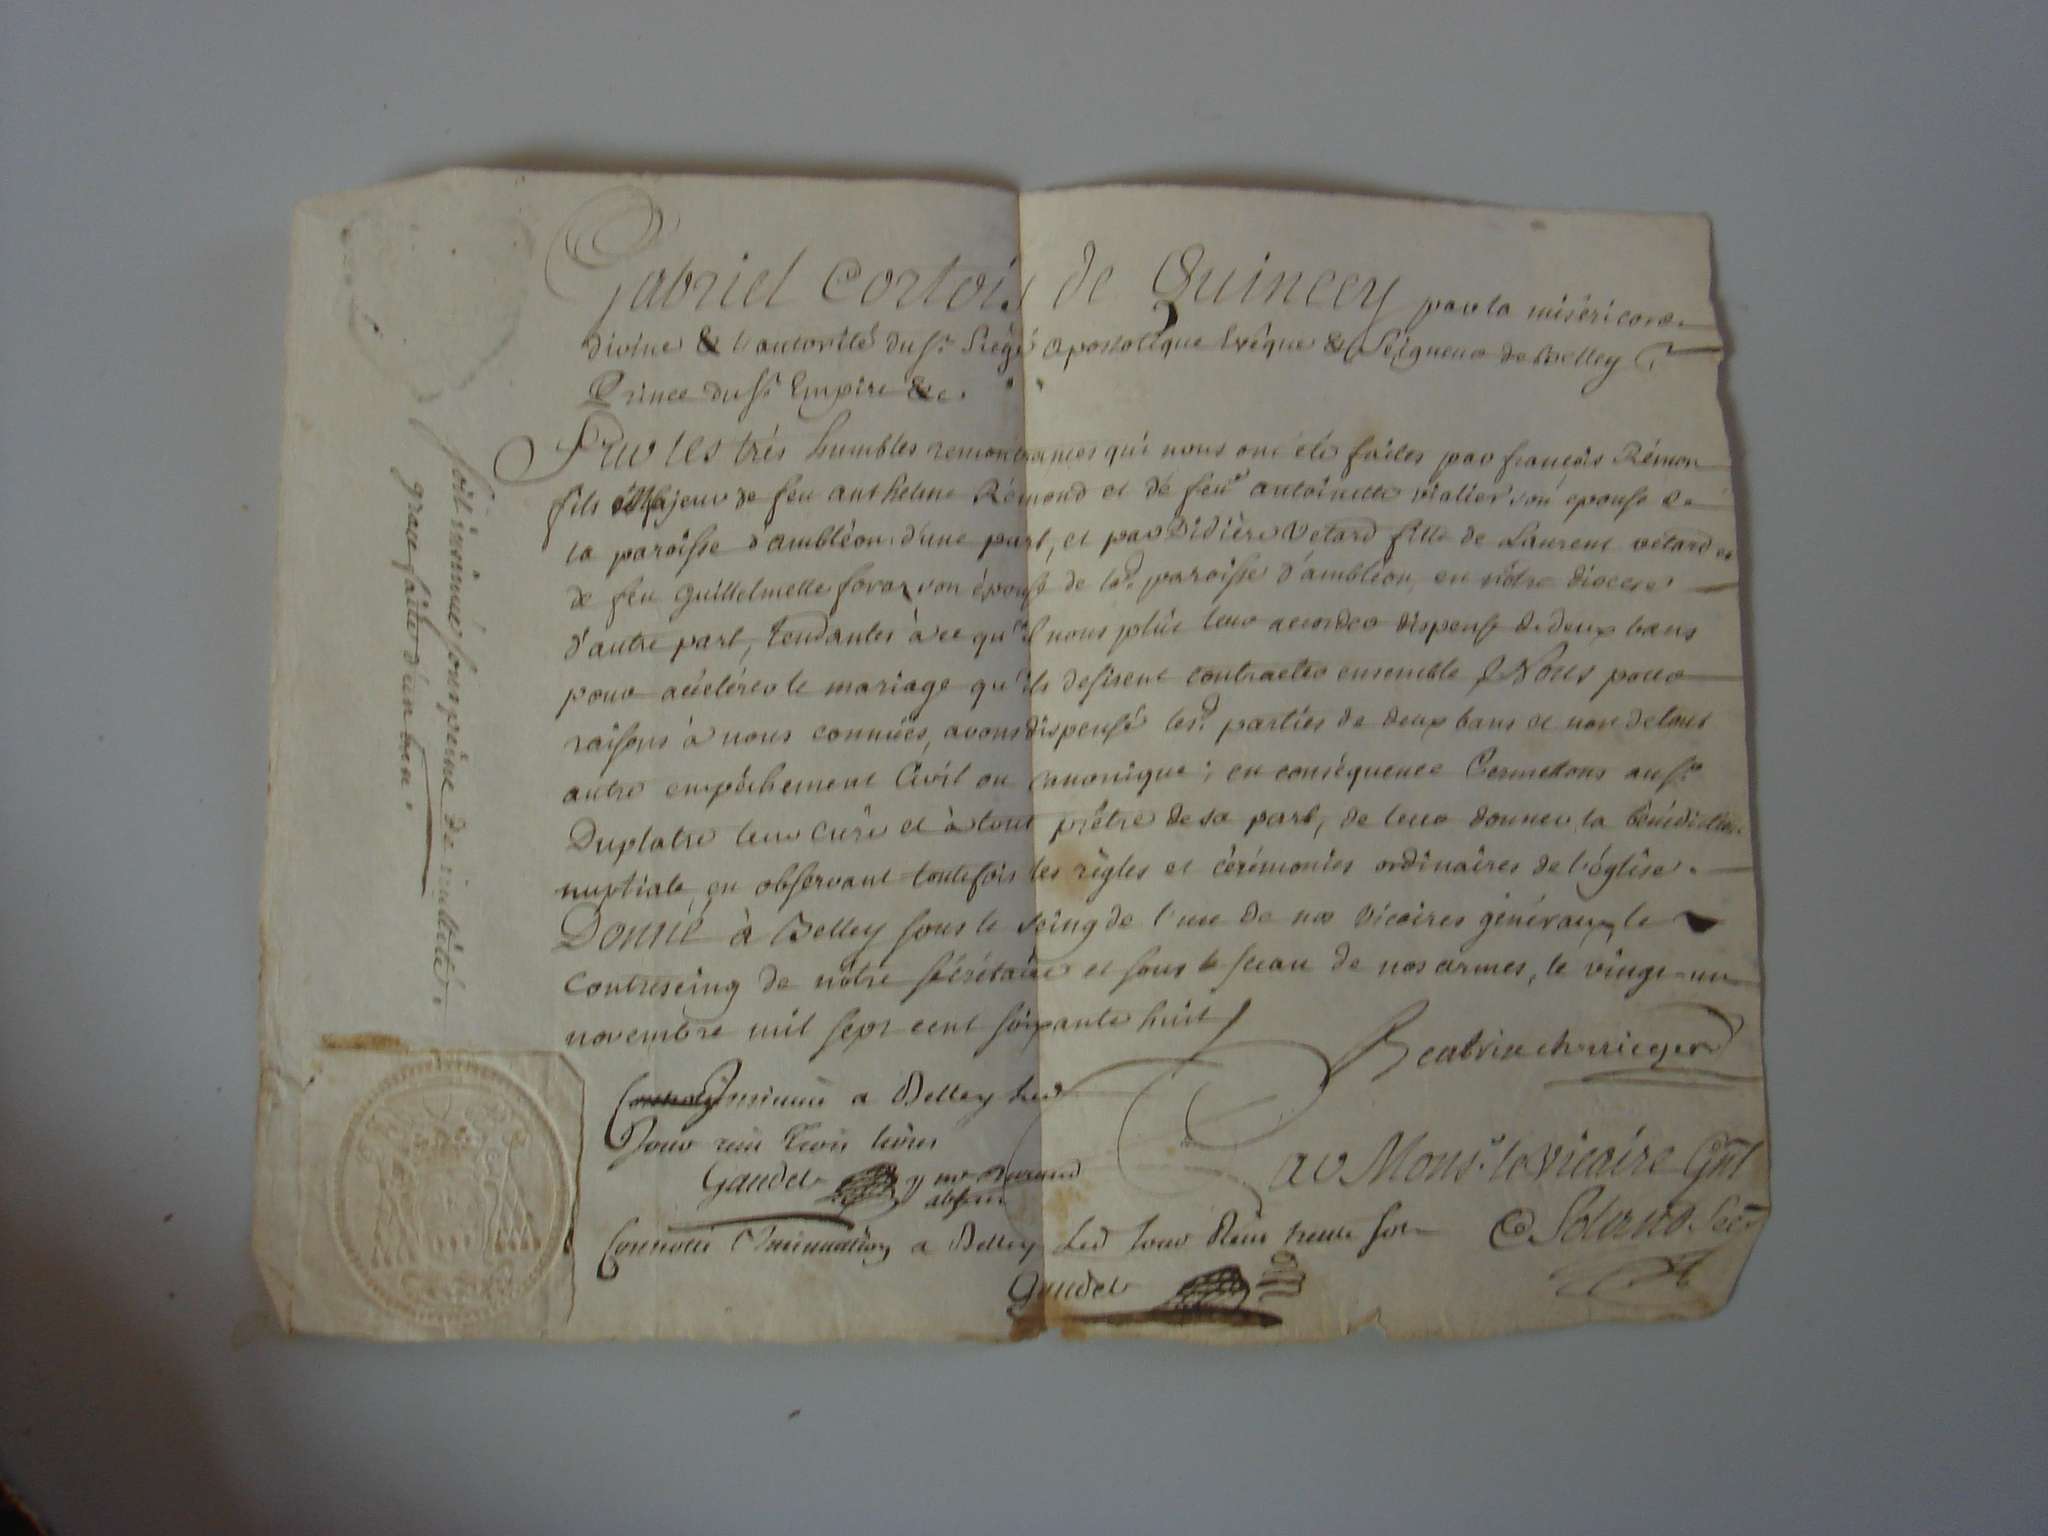 Gabriel Cortois de Quincey par la miséricorde
divine & l'autorité du St. Siége apostolique Evêque & Seigneur de Belley
Prince du St. Empire &c.
Sur les trés humbles remontrances qui nous ont été faites par françois Rémon
fils majeur de feu anthelme Rémond et de feue antoinette vialier son epouse de
la paroisse d'ambléon d'une part, et par Didière Vetard fille de Laurent vétard et
de feu guillelmette son épouse de lad. paroisse d'ambléon, en nôtre diocese
d'autre part, tendantes à ce qu'il nous plût leur accorder dispense de deux bans
pour accélérer le mariage qu'ils desirent contracter ensemble Nous pour
raisons à nous connües, avons dispensé lesd. parties de deux bans et non de tout
autre empêchement Civil ou Canonique; en conséquence Permettons au Sr.
Duplatre leur curé et à tout prêtre de sa part, de leur donner la bénédiction
nuptiale, en observant toutefois les règles et cérémonies ordinaires de l'église.
Donné à Belley sous le seing de l'un de nos vicaires généraux, le
contreseing de nôtre sécrétaire et sous le sceau de nos armes, le vingt-un
novembre mil sept cent soixante huit
Insinué a Belley led
Jour reçu trois livres
Gaudet y mr absent
Controllé l'insinuation a Belley led Jour Reçu trente sols
Gaudet
par Monsr. le vicaire Gnl
Secre
soit insinué sous peine de nullité.
grace faite d'un ban.